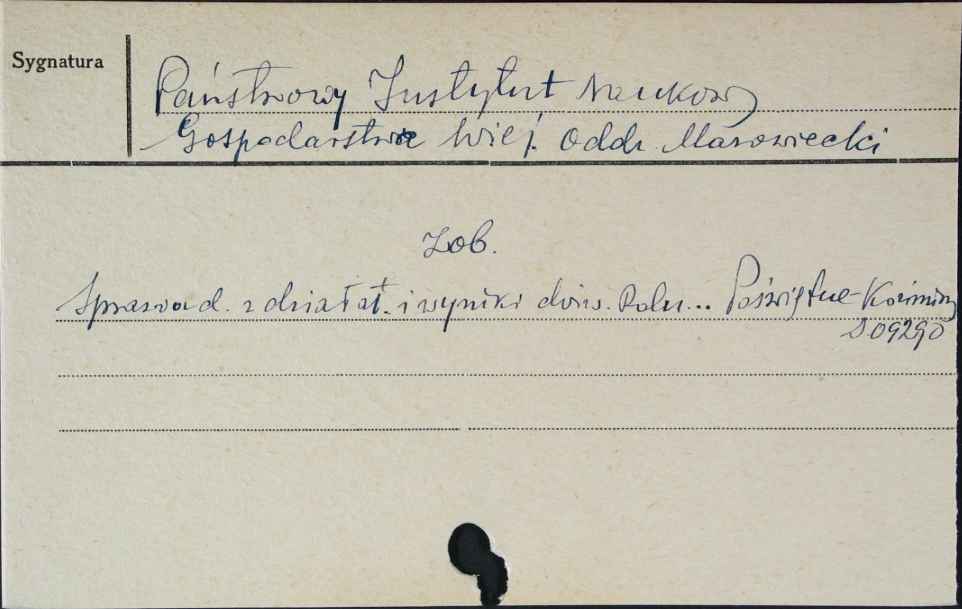 Sygnatura
Państwowy Instytut Naukowy
Gospodarstwa Wiej. Oddz. Mazowiecki
Zob.
Sprawozd. z działal. i wyniki dośw. Roln... Poświętne-Kośmin
S 09290